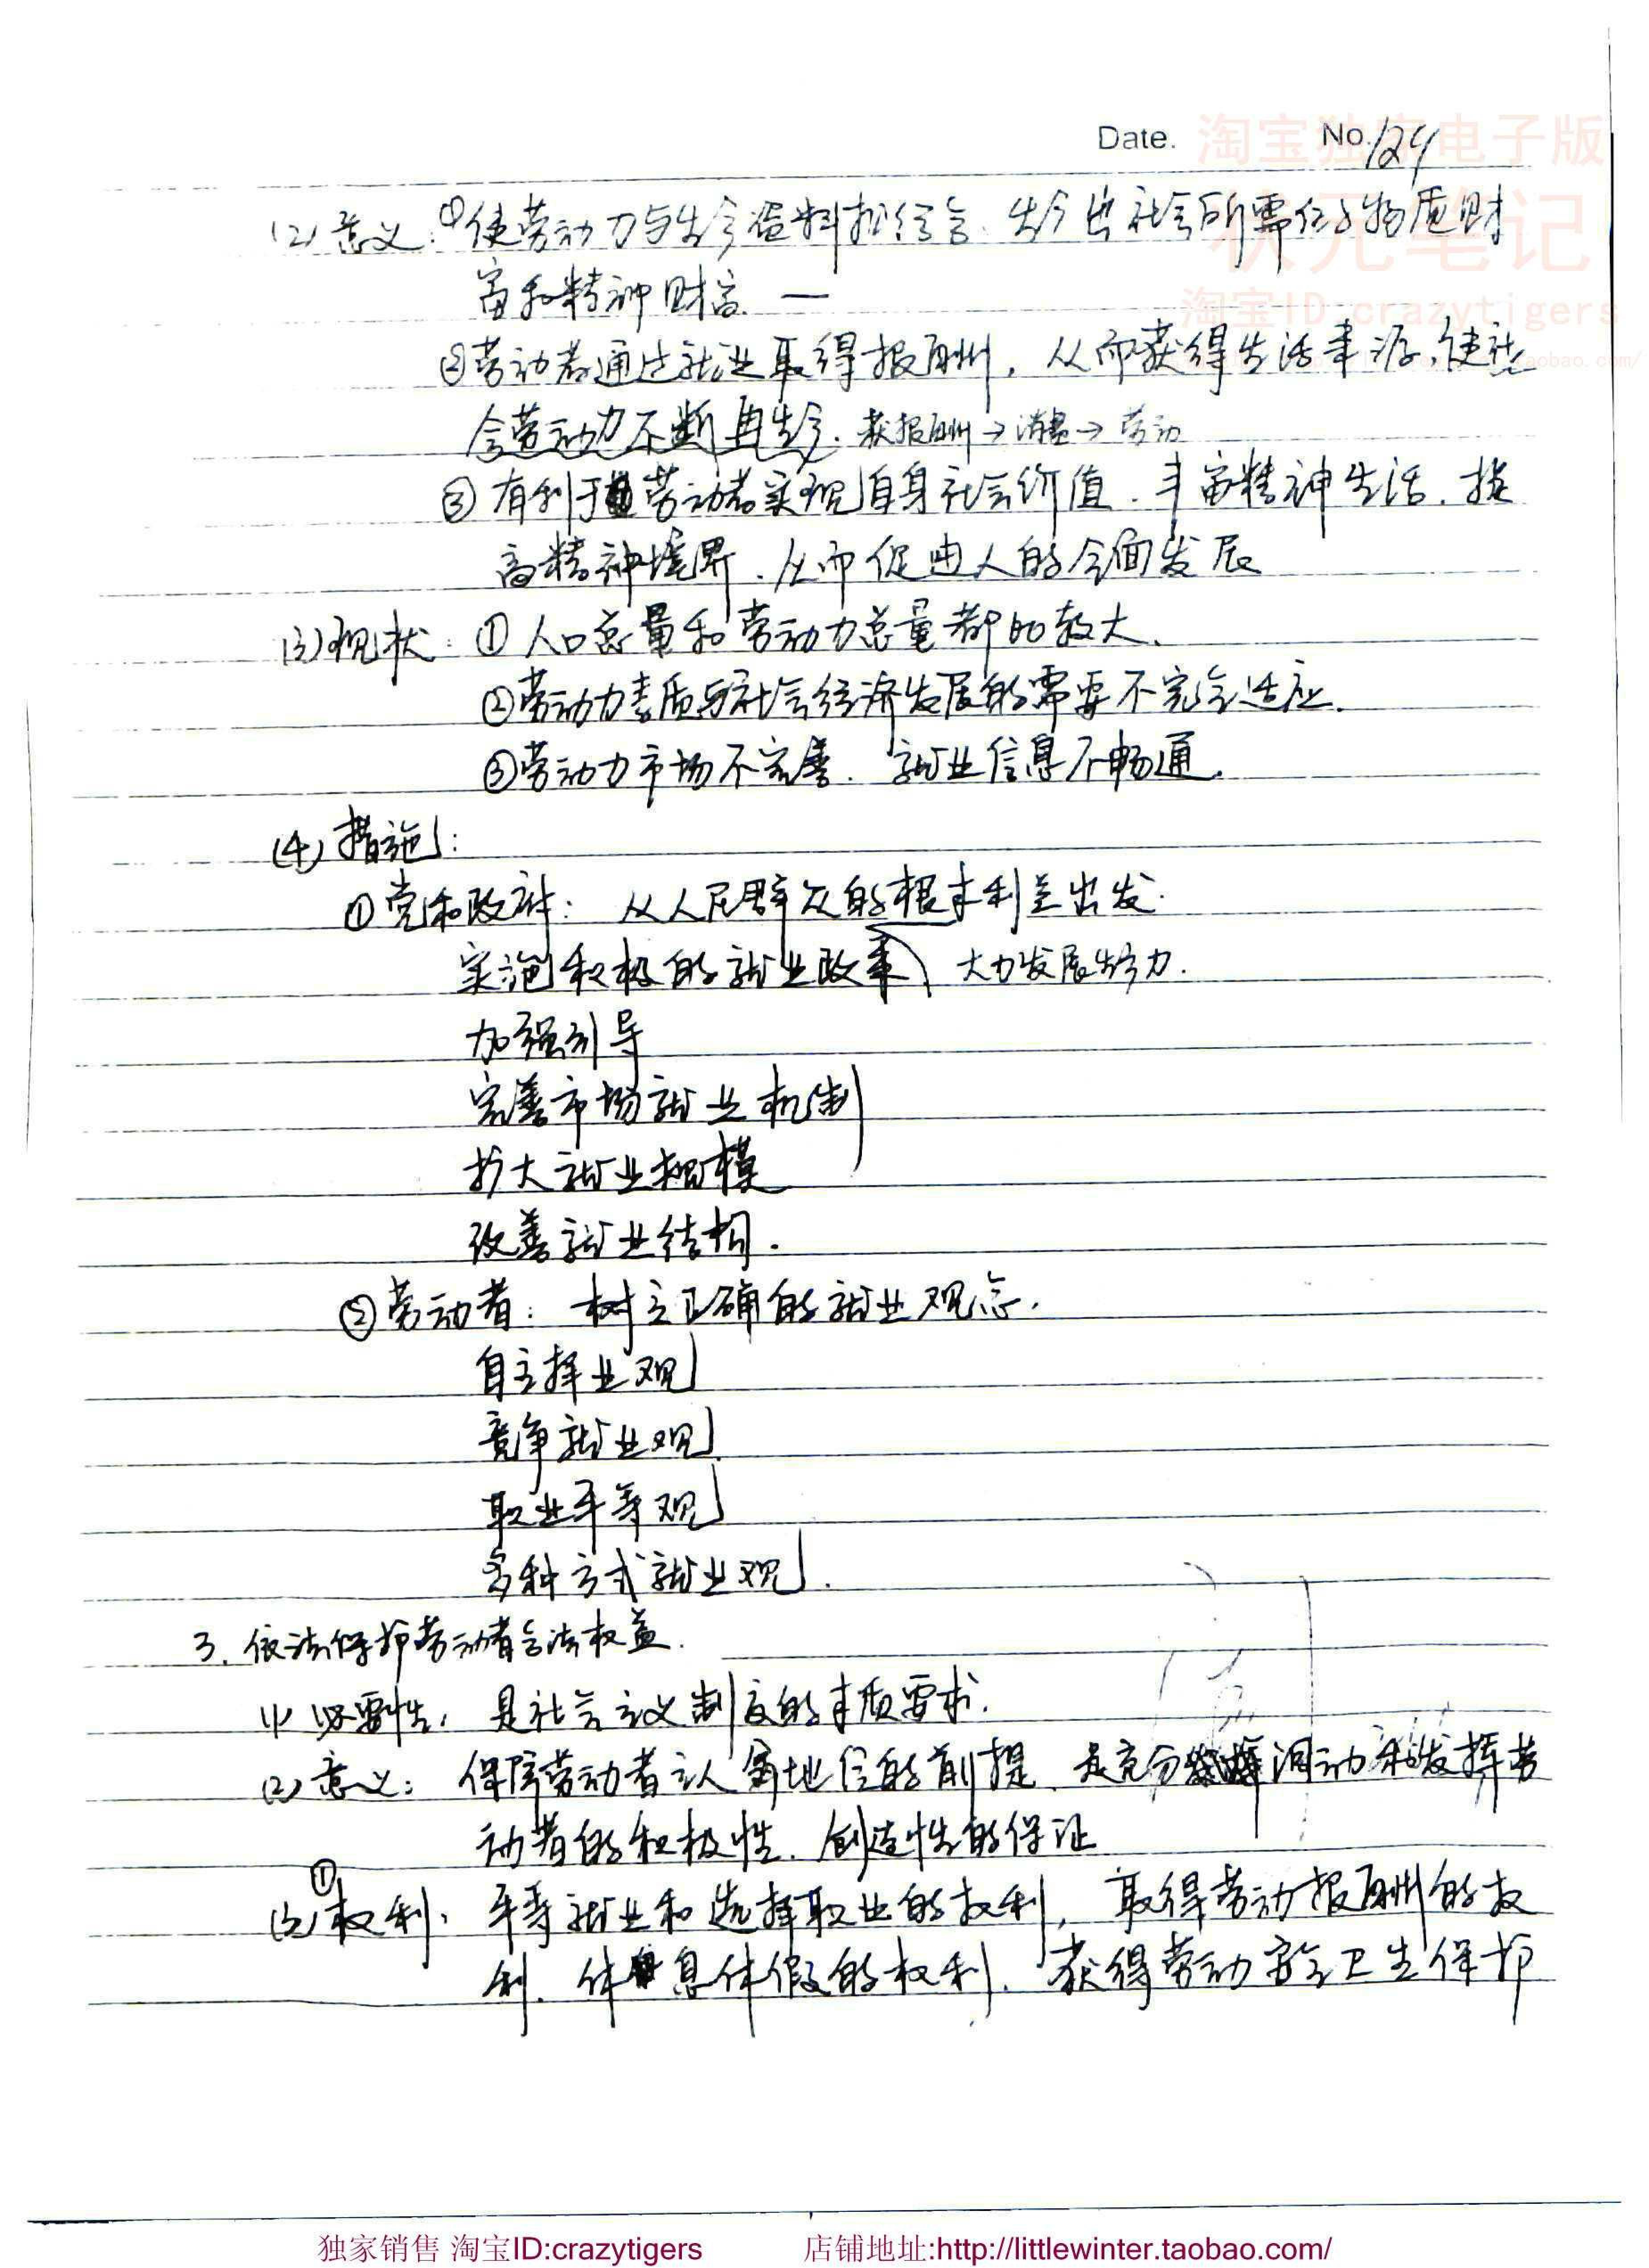 Date. No. 124
淘宝独家电子版
状元笔记
淘宝ID:crazytigers
(2) 意义:①使劳动力与生产资料相结合、生产出社会所需的物质财
富和精神财富. —
②劳动者通过就业取得报酬, 从而获得生活来源,使社
会劳动力不断再生产. 获报酬→消费→劳动
③有利于劳动者实现自身社会价值. 丰富精神生活. 提
高精神境界. 从而促进人的全面发展
(3)现状: ①人口总量和劳动力总量都比较大.
②劳动力素质与社会经济发展的需要不完全适应.
③劳动力市场不完善. 就业信息不畅通.
(4)措施:
①党和政府: 从人民群众的根本利益出发.
实施积极的就业政策、大力发展生产力.
加强引导
完善市场就业机制
扩大就业规模
改善就业结构.
②劳动者: 树立正确的就业观念.
自主择业观
竞争就业观
职业平等观
多种方式就业观.
3. 依法保护劳动者合法权益.
(1) 必要性: 是社会主义制度的本质要求.
(2) 意义: 保障劳动者主人翁地位的前提、是充分调动和发挥劳
动者的积极性、创造性的保证
(3)①权利: 平等就业和选择职业的权利, 取得劳动报酬的权
利、休息休假的权利、获得劳动安全卫生保护
独家销售 淘宝ID:crazytigers 店铺地址:http://littlewinter.taobao.com/